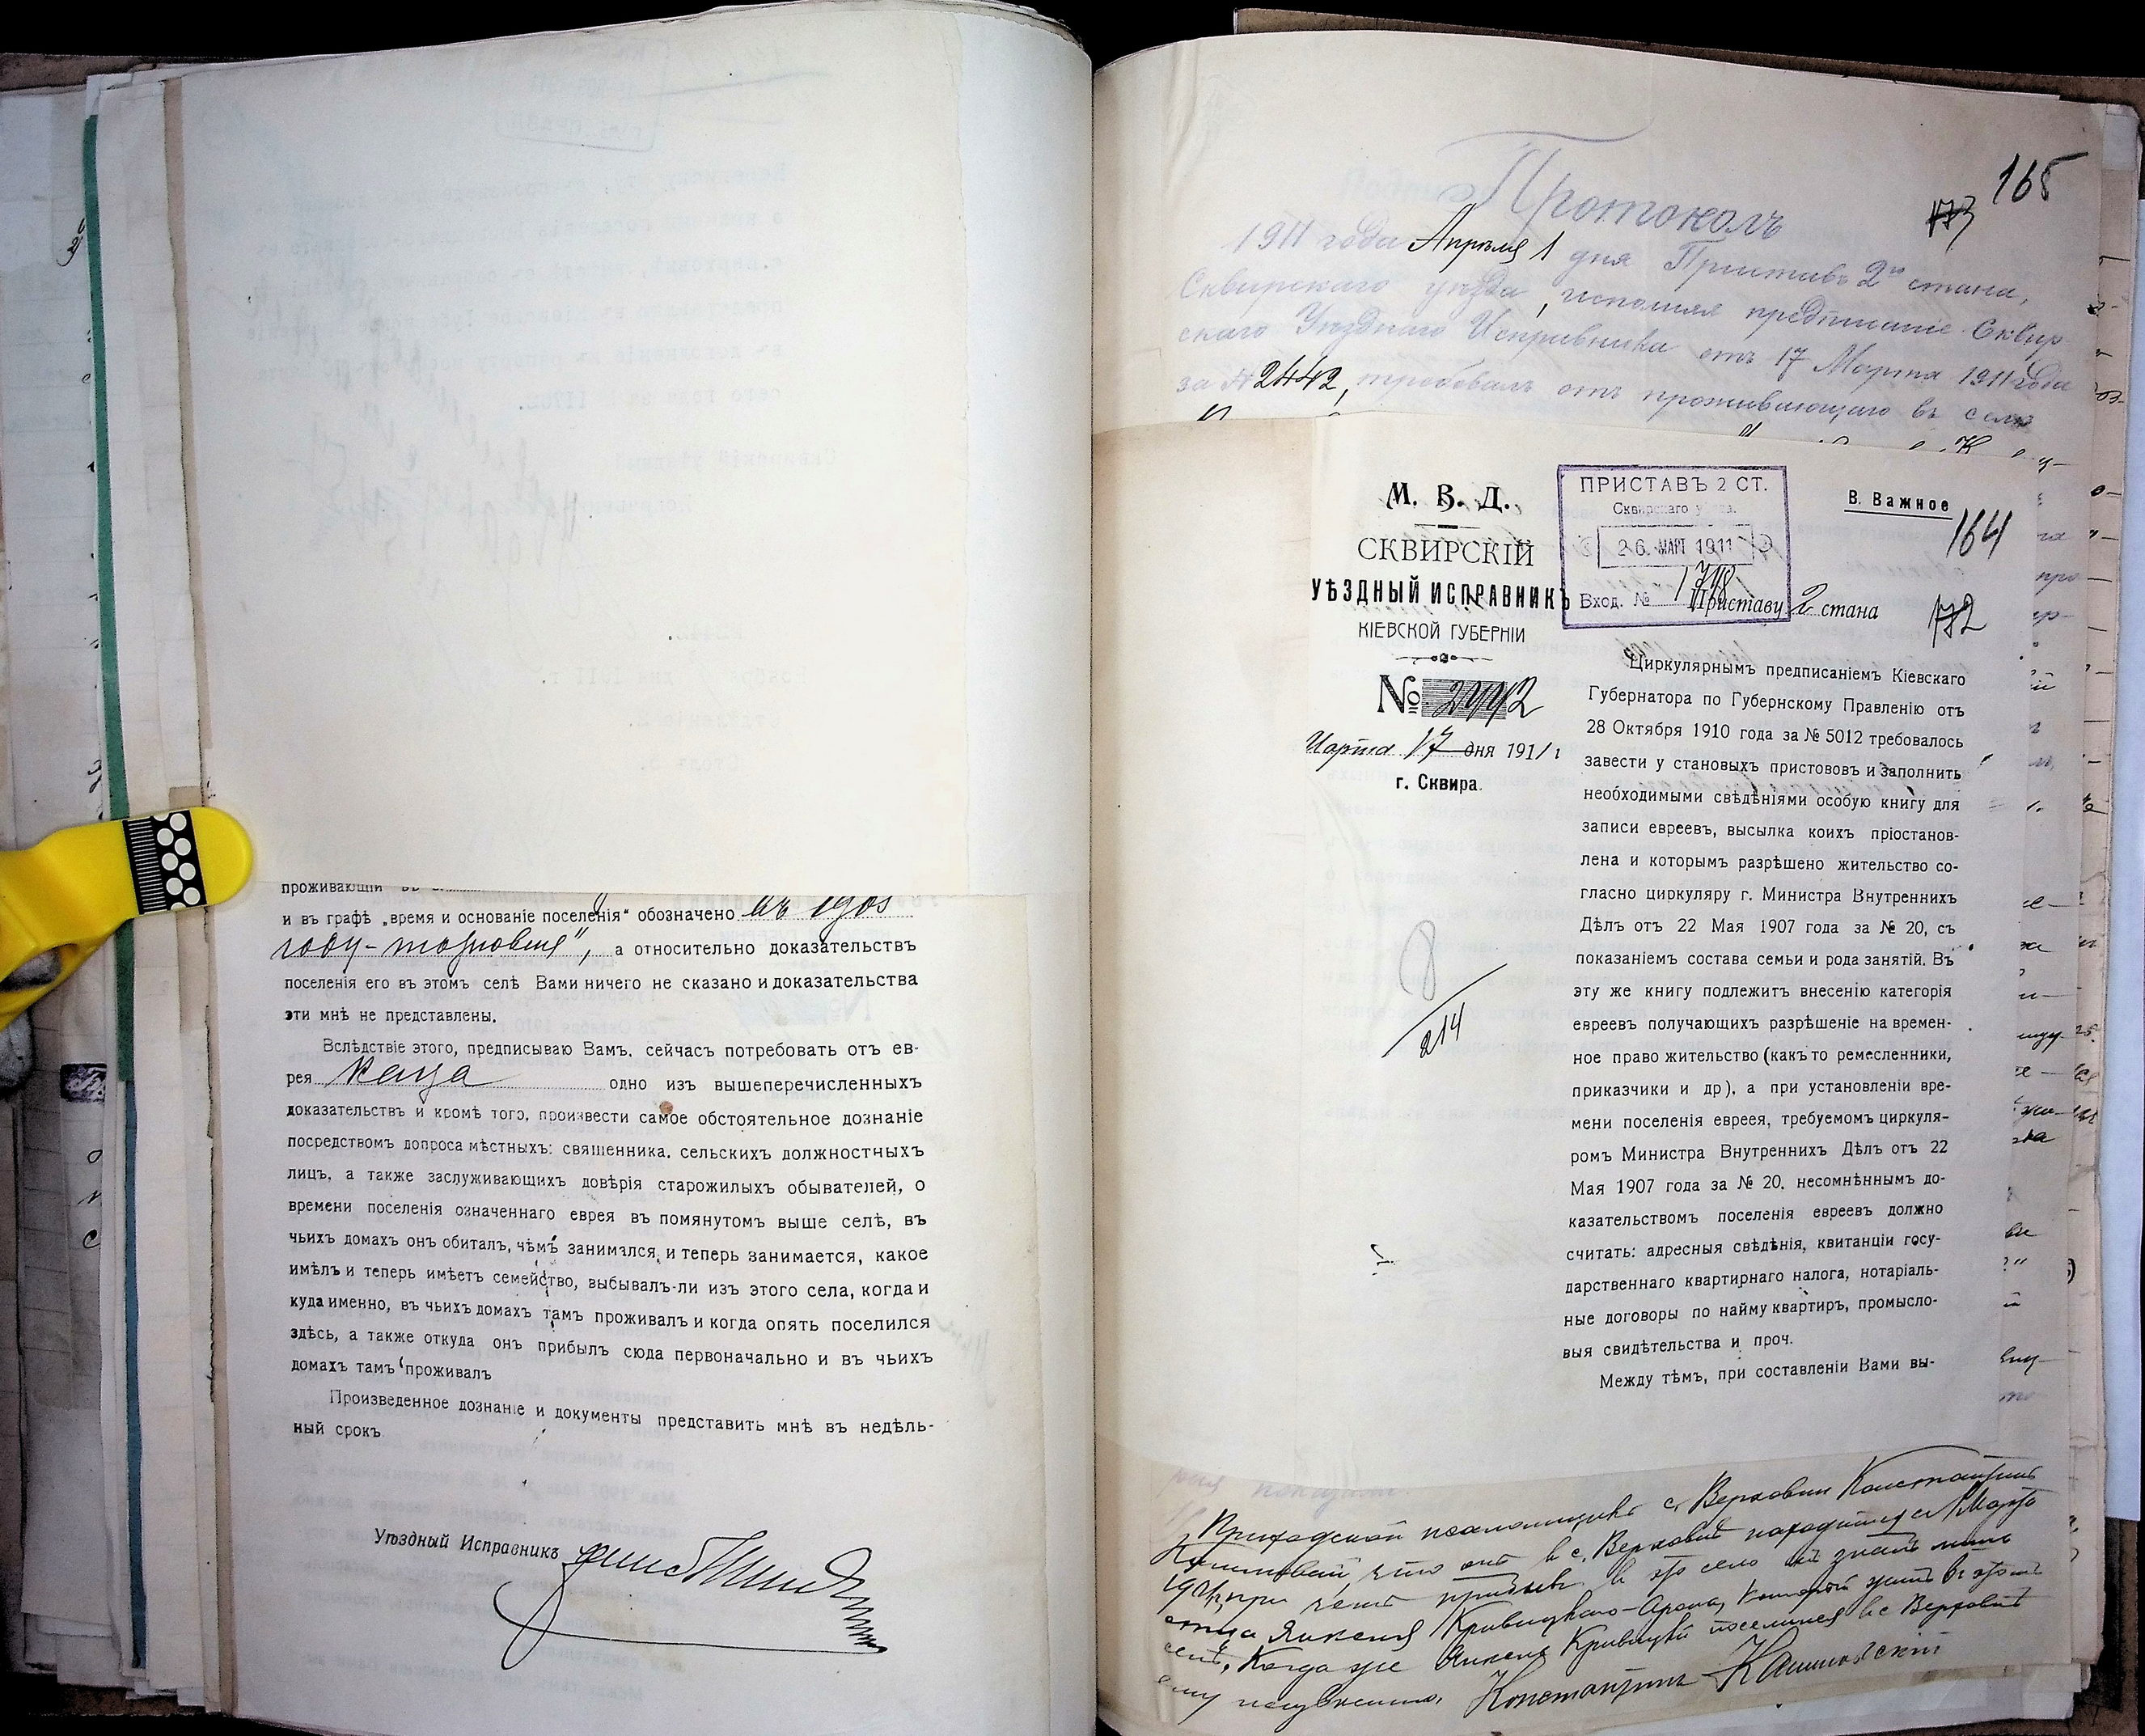 проживающій въ
и въ графѣ „время и основаніе поселенія“ обозначено въ 1903
году - торговля", а относительно доказательствъ
поселенія его въ этомъ селѣ Вами ничего не сказано и доказательства
эти мнѣ не представлены.
Вслѣдствіе этого, предписываю Вамъ, сейчасъ потребовать отъ ев-
рея Каца одно изъ вышеперечисленныхъ
доказательствъ и кромѣ того, произвести самое обстоятельное дознаніе
посредствомъ допроса мѣстныхъ: священника, сельскихъ должностныхъ
лицъ, а также заслуживающихъ довѣрія старожилыхъ обывателей, о
времени поселенія означеннаго еврея въ помянутомъ выше селѣ, въ
чьихъ домахъ онъ обиталъ, чѣмъ занимался, и теперь занимается, какое
имѣлъ и теперь имѣетъ семейство, выбывалъ-ли изъ этого села, когда и
куда именно, въ чьихъ домахъ тамъ проживалъ и когда опять поселился
здѣсь, а также откуда онъ прибылъ сюда первоначально и въ чьихъ
домахъ тамъ проживалъ
Произведенное дознаніе и документы представить мнѣ въ недѣль-
ный срокъ
Уѣздный Исправникъ
165
173
Протоколъ
1911 года Апрѣля 1 дня Приставъ 2го стана,
Сквирскаго уѣзда, исполняя предписаніе Сквир
скаго Уѣзднаго Исправника отъ 17 Марта 1911 года
за № 2442, требовалъ отъ проживающаго въ селѣ
М. В. Д.
СКВИРСКІЙ
УѢЗДНЫЙ ИСПРАВНИКЪ
КІЕВСКОЙ ГУБЕРНІИ
№ 2442
Марта 17 дня 1911 г
г. Сквира.
ПРИСТАВЪ 2 СТ.
Сквирскаго уѣзда.
26. МАРТ 1911
Вход. № 1718
В. Важное
164
Приставу 2 стана
172
Циркулярнымъ предписаніемъ Кіевскаго
Губернатора по Губернскому Правленію отъ
28 Октября 1910 года за № 5012 требовалось
завести у становыхъ пристововъ и заполнить
необходимыми свѣдѣніями особую книгу для
записи евреевъ, высылка коихъ пріостанов-
лена и которымъ разрѣшено жительство со-
гласно циркуляру г. Министра Внутреннихъ
Дѣлъ отъ 22 Мая 1907 года за № 20, съ
показаніемъ состава семьи и рода занятій. Въ
эту же книгу подлежитъ внесенію категорія
евреевъ получающихъ разрѣшеніе на времен-
ное право жительство (какъ то ремесленники,
приказчики и др), а при установленіи вре-
мени поселенія евреея, требуемомъ циркуля-
ромъ Министра Внутреннихъ Дѣлъ отъ 22
Мая 1907 года за № 20, несомнѣннымъ до-
казательствомъ поселенія евреевъ должно
считать: адресныя свѣдѣнія, квитанціи госу-
дарственнаго квартирнаго налога, нотаріаль-
ные договоры по найму квартиръ, промысло-
выя свидѣтельства и проч.
Между тѣмъ, при составленіи Вами вы-
8
214
Приходской псаломщикъ с. Верховни Константинъ
что онъ въ с. Верховнѣ находится съ Марта
при чемъ прибывъ въ это село не знаетъ лишь
отца Янкеля Кривицкаго-Арона, который живетъ въ этомъ
селѣ, Когда же Янкель Кривицкій поселился въ с Верховнѣ
ему неизвѣстно. Константинъ